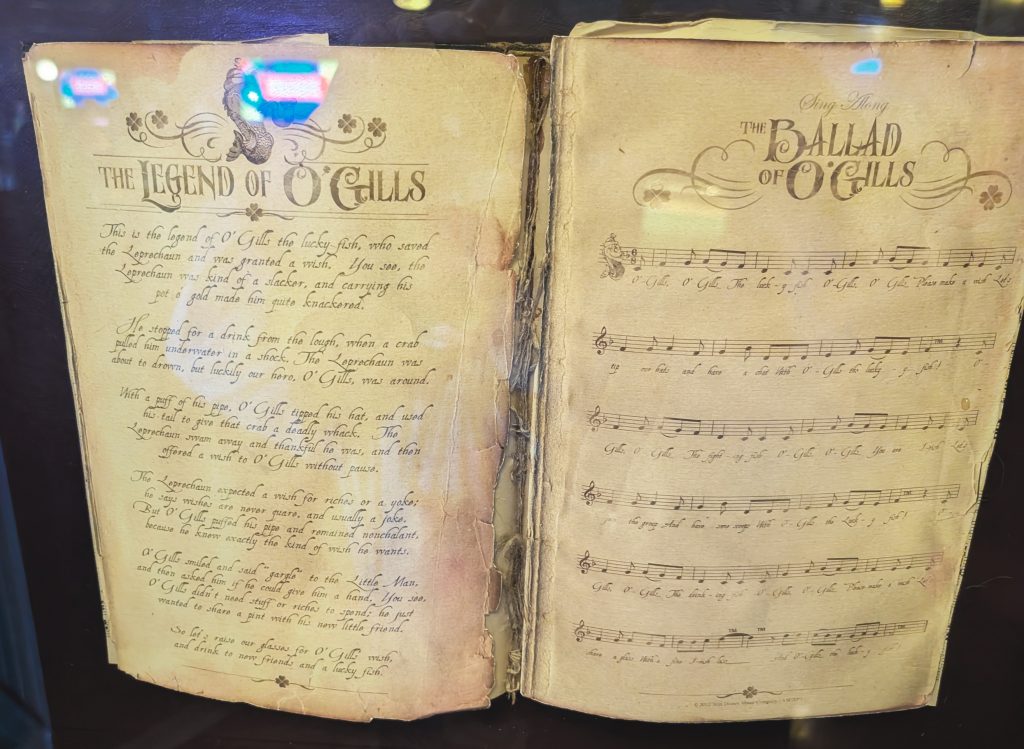 THE LEGEND OF O'GILLS
This is the legend of O' Gills the lucky fish, who saved
the Leprechaun and was granted a wish. You see, the
Leprechaun was kind of a slacker, and carrying his
pot o' gold made him quite knackered.
He stopped for a drink from the lough, when a crab
pulled him underwater in a shock. The Leprechaun was
about to drown, but luckily our hero, O'Gills, was around.
With a puff of his pipe, O'Gills tipped his hat, and used
his tail to give that crab a deadly whack. The
Leprechaun swam away and thankful he was, and then
offered a wish to O'Gills without pause.
The Leprechaun expected a wish for riches or a yoke;
he says wishes are never quare, and usually a joke.
But O'Gills puffed his pipe and remained nonchalant,
because he knew exactly the kind of wish he wants.
O'Gills smiled and said "gargle" to the Little Man,
and then asked him if he could give him a hand. You see,
O'Gills didn't need stuff or riches to spend; he just
wanted to share a pint with his new little friend.
So let's raise our glasses for O'Gills' wish,
and drink to new friends and a lucky fish.
Sing Along
THE BALLAD
OF O'GILLS
O'-Gills, O' Gills, The luck-y fish O'-Gills, O' Gills, Please make a wish Let's
tip our hats and have a chat With O'-Gills the lucky-y fish! O'-
Gills, O'-Gills, The fight-ing fish O'-Gills, O'-Gills, You are I-rish Let's
the group And have some scoops With O'-Gills the Luck-y fish! O'-
Gills, O'-Gills, The drink-ing fish O'-Gills, O'-Gills, Please make a wish Let's
share a glass With a fine I-rish lass And O'-Gills, the luck-y fish